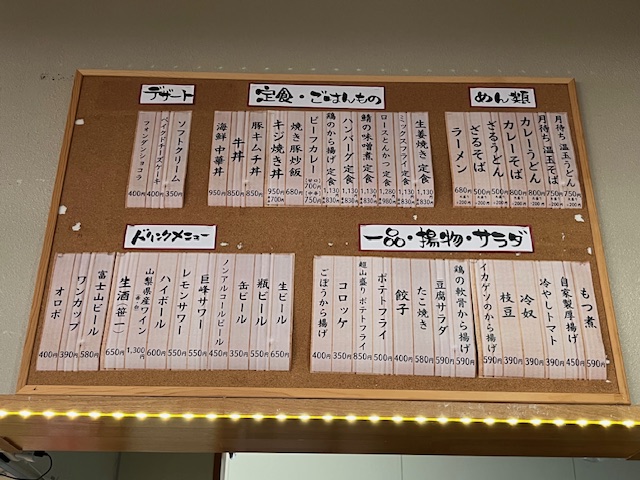 めん類
月待ち 温玉うどん 750円
月待ち 温玉そば 750円
カレーうどん 800円
カレーそば 800円
ざるうどん 500円
ざるそば 500円
ラーメン 680円
定食・ごはんもの
生姜焼き 定食 1,130円
ミックスフライ 定食 1,130円
ロースとんかつ 定食 1,280円
鯖の味噌煮 定食 1,130円
ハンバーグ 定食 1,130円
鶏のから揚げ 定食 1,130円
ビーフカレー
焼き豚炒飯 680円
キジ焼き丼 950円
豚キムチ丼 850円
牛丼 850円
海鮮 中華丼 950円
デザート
ソフトクリーム 350円
ベイクドチーズケーキ 400円
フォンダンショコラ 400円
一品・揚物・サラダ
もつ煮 590円
自家製厚揚げ 450円
冷やしトマト 390円
冷奴 390円
枝豆 390円
イカゲソのから揚げ 590円
鶏の軟骨から揚げ 590円
豆腐サラダ 590円
たこ焼き 580円
餃子 400円
ポテトフライ 500円
超山盛り ポテトフライ
コロッケ 350円
ごぼうから揚げ 400円
ドリンクメニュー
生ビール 650円
瓶ビール 650円
缶ビール 350円
ノンアルコールビール 450円
巨峰サワー 550円
レモンサワー 550円
ハイボール 600円
山梨県産ワイン 1,300円
生酒(笹一) 650円
富士山ビール 580円
ワンカップ 390円
オロポ 400円